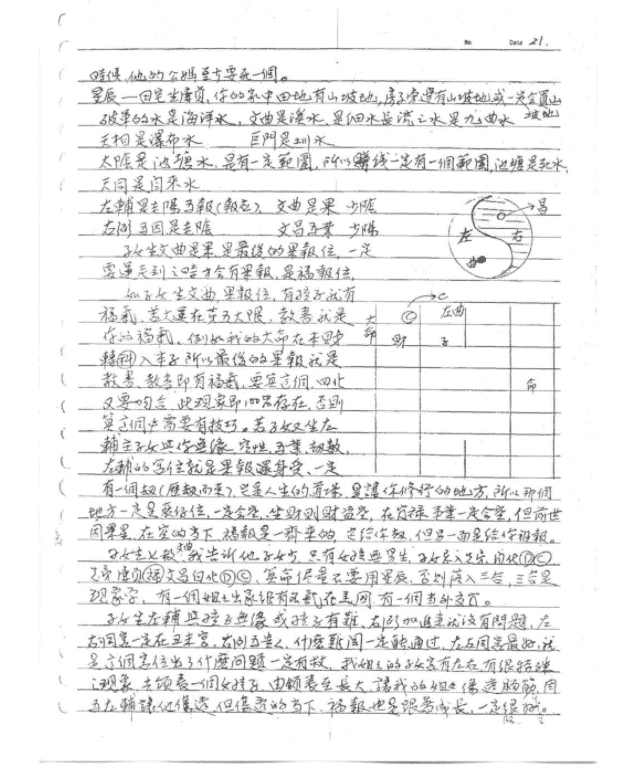 No Date 21.
時候,他的公媽至少要死一個。
星辰—田宅生廉貞,你的家中田地有山坡地,房子旁邊有山坡地或一定會買山坡地
破軍的水是海洋水,文曲是溪水,是細水長流之水是九曲水
天相是瀑布水 巨門是圳水
太陰是池塘水,是有一定範圍,所以賺錢一定有一個範圍,池塘是死水,
天同是問來水
左輔是老陽 五報(報應),文曲是果 少陰
右弼 五因是老陰 文昌五業 少陽
子女坐文曲是果,是最後的果報位,一定
要運走到這時才會有果報,是福報位,
如子女坐文曲,果報位,有孩子就有
福氣,若大運在第五大限,教書就是
你的福氣,例如我的大命在本財
轉科入本子所以最後的果報就是
教書,教書即有福氣,要算這個,四化
又要吻合,此現象即100%存在,否則
算這個也需要有技巧。若子女又坐左
輔主子女與你無緣,空性,五業,劫數,
左輔的宮位就是果報還身受,一定
有一個劫(歷劫而來),它是人生的道場,是讓你修行的地方,所以那個
地方一定是要給位,一定會空,坐財則財盜空,在官祿事業一定會空,但前世
因果星,在空的當下,福報是一齊來的,它給你劫,但另一面是給你福報。
我告訴他子女少,只有女孩無男生,
廉貞 文昌自化,算命儘量不要用星辰,否則落入三合,三合是
現象字,有一個姐 出家很有成就在美國有一個寺
子女坐左輔與孩子無緣或孩子有難,右弼加進來就沒有問題,左
右同宮一定在丑未宮,右弼五貴人,什麼難關一定能通過,左右同宮最好,就
是這個宮位出了什麼問題一定有救,我姐的子女宮有左右有很特殊
之現象,去領養一個女孩子,由領養至長大讓我的姐 傷透腦筋,因
五左輔讓他傷透,但傷透的當下,福報也是跟著成長,一定很好。
左 右 昌 曲
C 大命 財 左曲 子 命